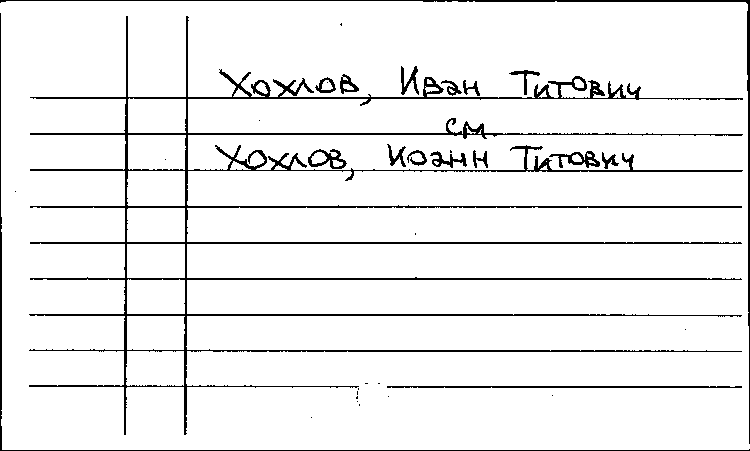 Хохлов, Иван Титович
см.
Хохлов, Иоанн Титович